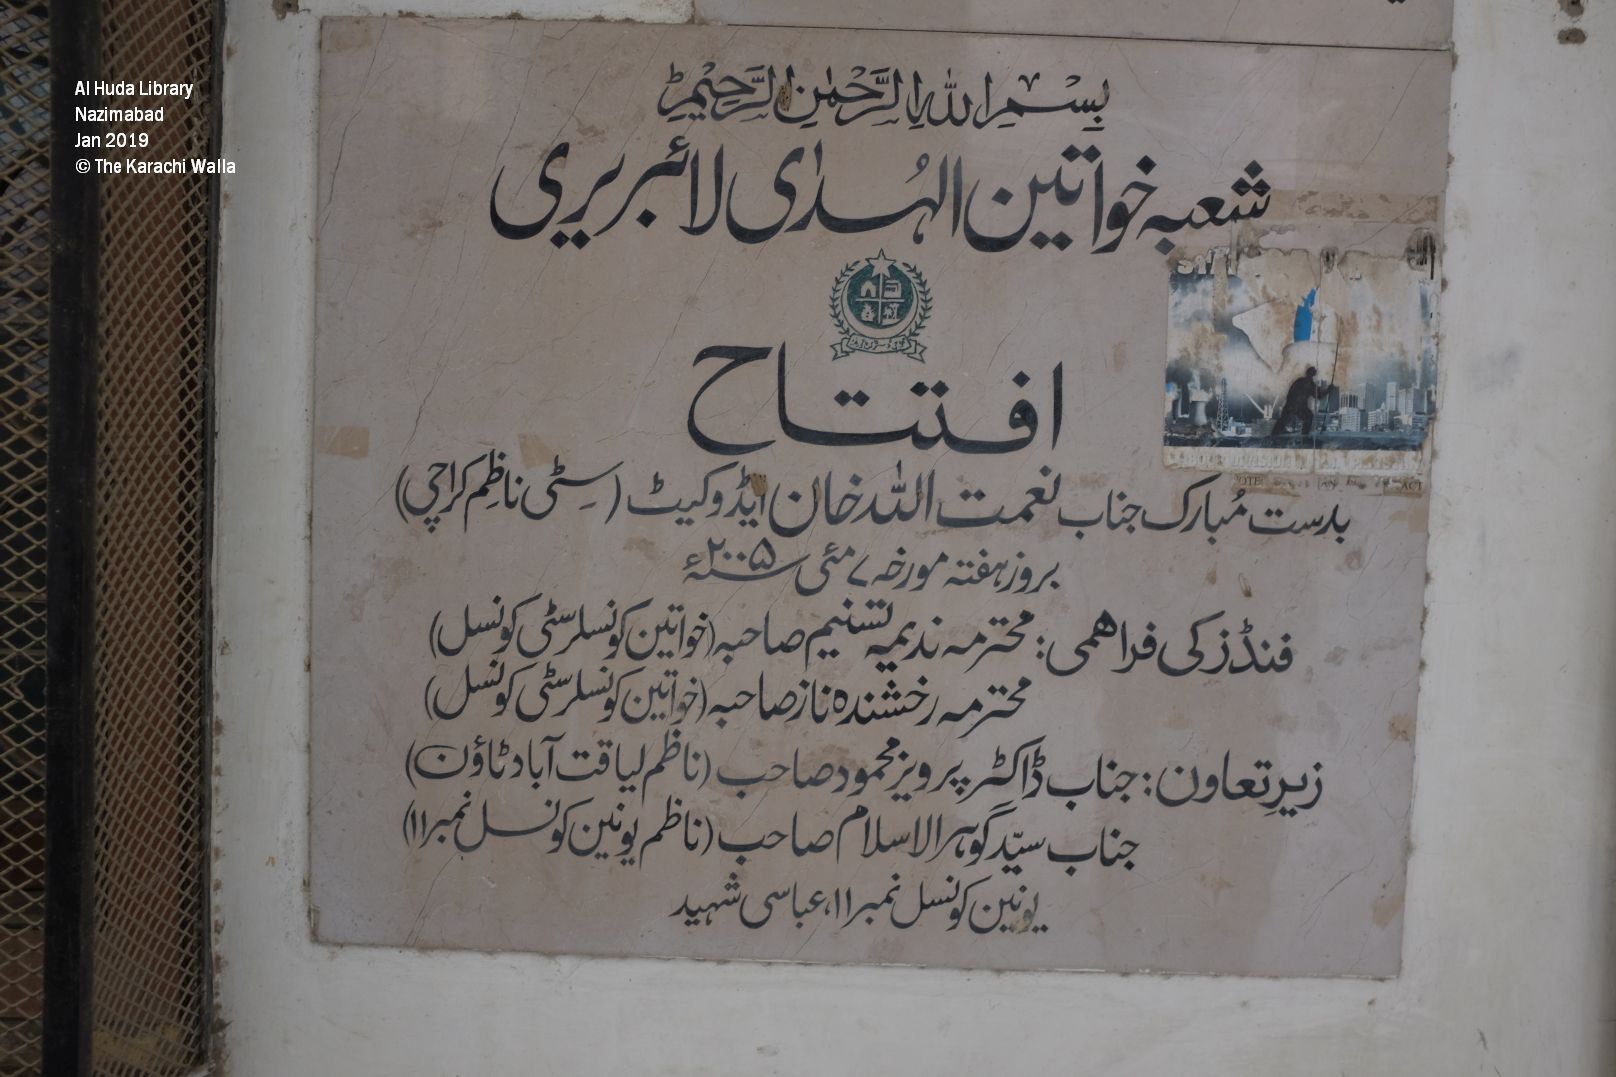 Al Huda Library
Nazimabad
Jan 2019
© The Karachi Walla
بِسْمِ اللہِ الرَّحْمٰنِ الرَّحِيْمِ
شعبہ خواتین الہُدٰی لائبریری
افتتاح
بدست مُبارک جناب نعمت اللہ خان ایڈوکیٹ (سِٹی ناظِم کراچی)
بروز ہفتہ مورخہ ۷ مئی ۲۰۰۵ء
فنڈز کی فراہمی: محترمہ ندیمہ تسنیم صاحبہ (خواتین کونسلر سٹی کونسل)
محترمہ رخشندہ ناز صاحبہ (خواتین کونسلر سٹی کونسل)
زیرِ تعاون: جناب ڈاکٹر پرویز محمود صاحب (ناظم لیاقت آباد ٹاؤن)
جناب سیّد گوہر الاسلام صاحب (ناظم یونین کونسل نمبر ۱۱)
یونین کونسل نمبر ۱۱، عباسی شہید